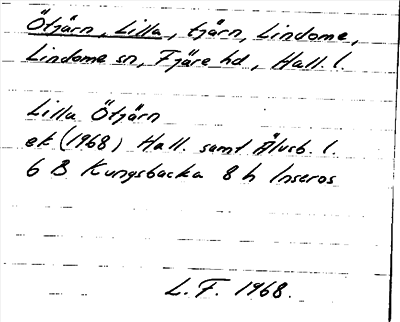 Ötjärn, Lilla, tjärn, Lindome,
Lindome sn, Fjäre hd, Hall. l.
Lilla Ötjärn
ek (1968) Hall. samt Älvsb. l.
6 B Kungsbacka 8 h Inseros
L. F. 1968.